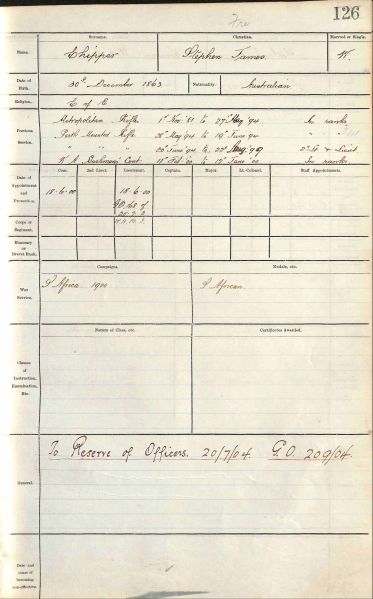 Fre
126
Surname. Christian. Married or Single.
Name. Chipper Stephen James W.
Date of Birth. 30th December 1863 Nationality. Australian
Religion. C of E
Previous Service.
Metropolitan Rifle 1st Nov '81 to 27th May '94. In ranks
Perth Mounted Rifle 28th May '94 to 19th June '94 " "
" " " 20th June '94 to 2nd Lt & Lieut
W. A. Bushmen's Cont. to In ranks
Date of Appointment and Promotion. Com. 2nd Lieut. Lieutenant. Captain. Major. Lt.-Colonel. Staff Appointments.
18.6.00 18.6.00
G.O. 168 of
Corps or Regiment.
Honorary or Brevet Rank.
War Service. Campaigns. Medals, etc.
S Africa 1900 S African
Classes of Instruction, Examination, Etc. Names of Class, etc. Certificates Awarded.
General. To Reserve of Officers. 20/7/04. G.O. 209/04.
Date and cause of becoming non-effective.